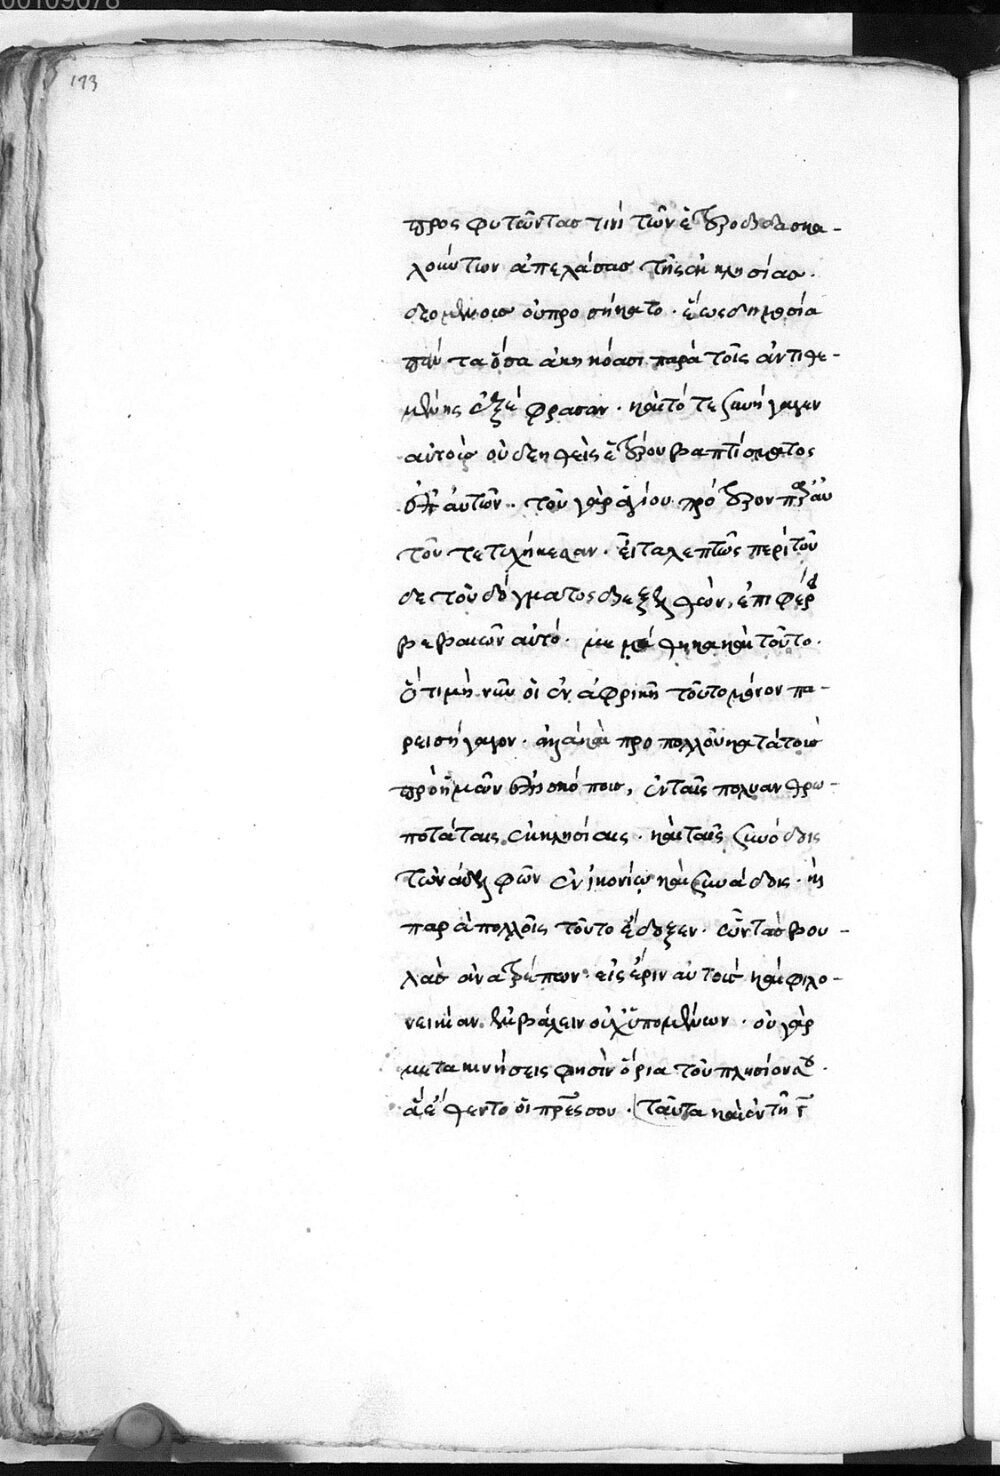 00109078
193
προς φοιτῶντας τινὶ τῶν ἑτεροδιδασκα-
λούντων ἀπελάσας τῆς ἐκκλησίας.
δεομένους οὐ προσήκατο. ἕως δημοσίᾳ
πάντα ὅσα ἀκηκόασι παρὰ τοῖς ἀντιθε-
μένοις ἐξέφρασαν. καὶ τότε συνήγαγεν
αὐτοὺς οὐ δεηθεὶς ἑτέρου βαπτίσματος
ἐπ' αὐτῶν. τοῦ γὰρ ἁγίου πρότερον παρ' αὐ
τοῦ τετυχήκεσαν. εἶτα λεπτῶς περὶ τοῦ
δε τοῦ δόγματος διεξελθὼν, ἐπιφέρει
βεβαιῶν αὐτό. μεμάθηκα καὶ τοῦτο.
ὅτι μὴ νῦν οἱ ἐν ἀφρικῇ τοῦτο μόνον πα-
ρεισήγαγον. ἀλλὰ καὶ προ πολλοῦ κατὰ τοὺς
πρὸ ἡμῶν ἐπισκόπους, ἐν ταῖς πολυανθρω-
ποτάταις ἐκκλησίαις. καὶ ταῖς συνόδοις
τῶν ἀδελφῶν ἐν ἰκονίῳ καὶ συνάδοις. καὶ
παρὰ πολλοῖς τοῦτο ἔδοξεν. ὧν τὰς βου-
λὰς ἀνατρέπων εἰς ἔριν αὐτοὺς καὶ φιλο-
νεικίαν ἐμβάλειν οὐχ ὑπομένων. οὐ γὰρ
μετακινήσεις φησὶν ὅρια τοῦ πλησίον σου.
ἃ ἔθεντο οἱ πρες σου. ταῦτα καὶ ἐν τῇ γ